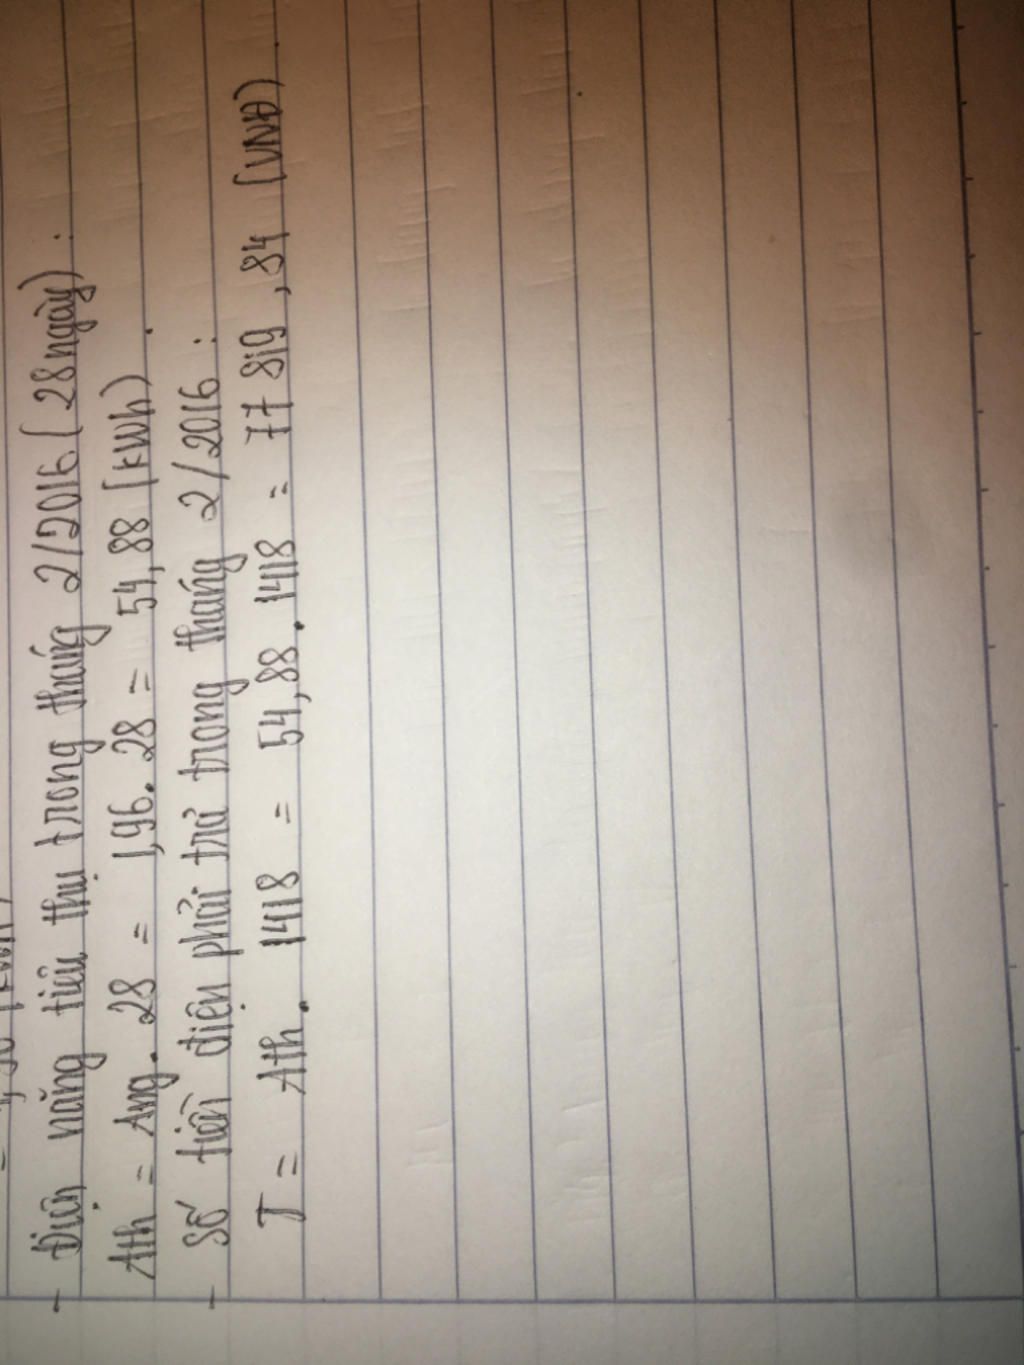 - Điện năng tiêu thụ trong tháng 2/2016 (28 ngày) :
Ath = Ang . 28 = 1,96 . 28 = 54,88 (kWh) .
- Số tiền điện phải trả trong tháng 2/2016 :
T = Ath . 1418 = 54,88 . 1418 = 77 819,84 (VNĐ)